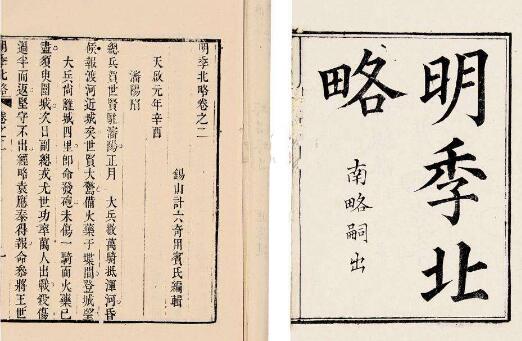 明季北
略
南略嗣出
明季北略卷之二
錫山計六奇用賓氏編輯
天啟元年辛酉
瀋陽䧟
總兵賀世賢駐瀋陽正月 大兵數萬騎抵渾河昏
候報渡河近城矣世賢大驚備火藥于堞間登城望
大兵尚離城四里卽命發砲未傷一騎而火藥已
盡須臾圍城次日副總戎尤世功率萬人出戰殺傷
過半而返堅守不出經略袁應泰得報命參將王世
明季北略 卷之二